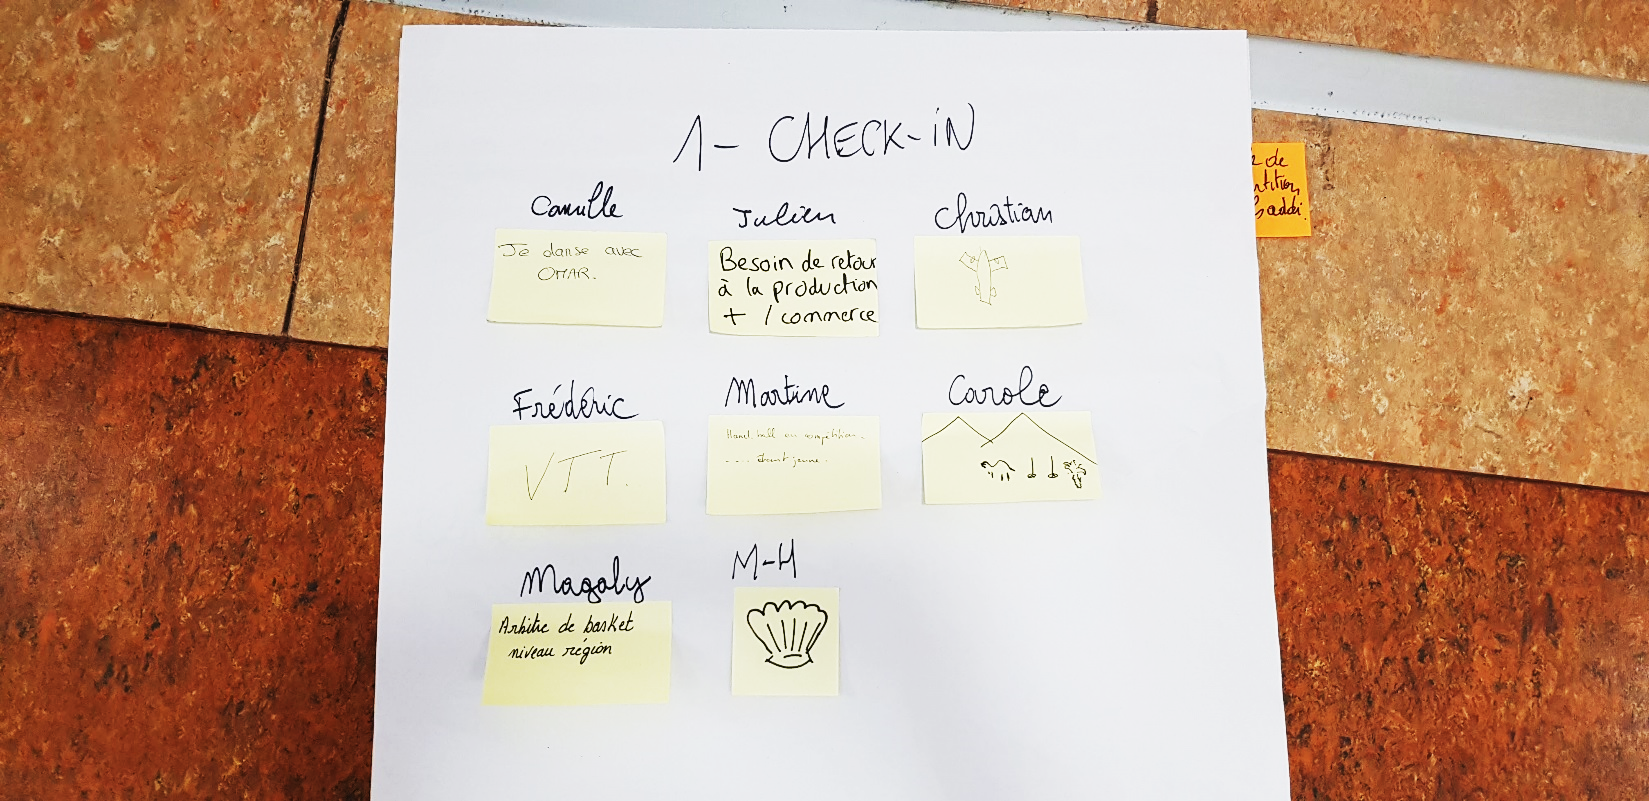 1- CHECK-iN
Camille
Je danse avec
OMAR.
Julien
Besoin de retour
à la production
+ / commerce
Christian
Frédéric
VTT.
Martine
Hand ball en compétition.
.... étant jeune.
Carole
Magaly
Arbitre de basket
niveau région
M-H
de